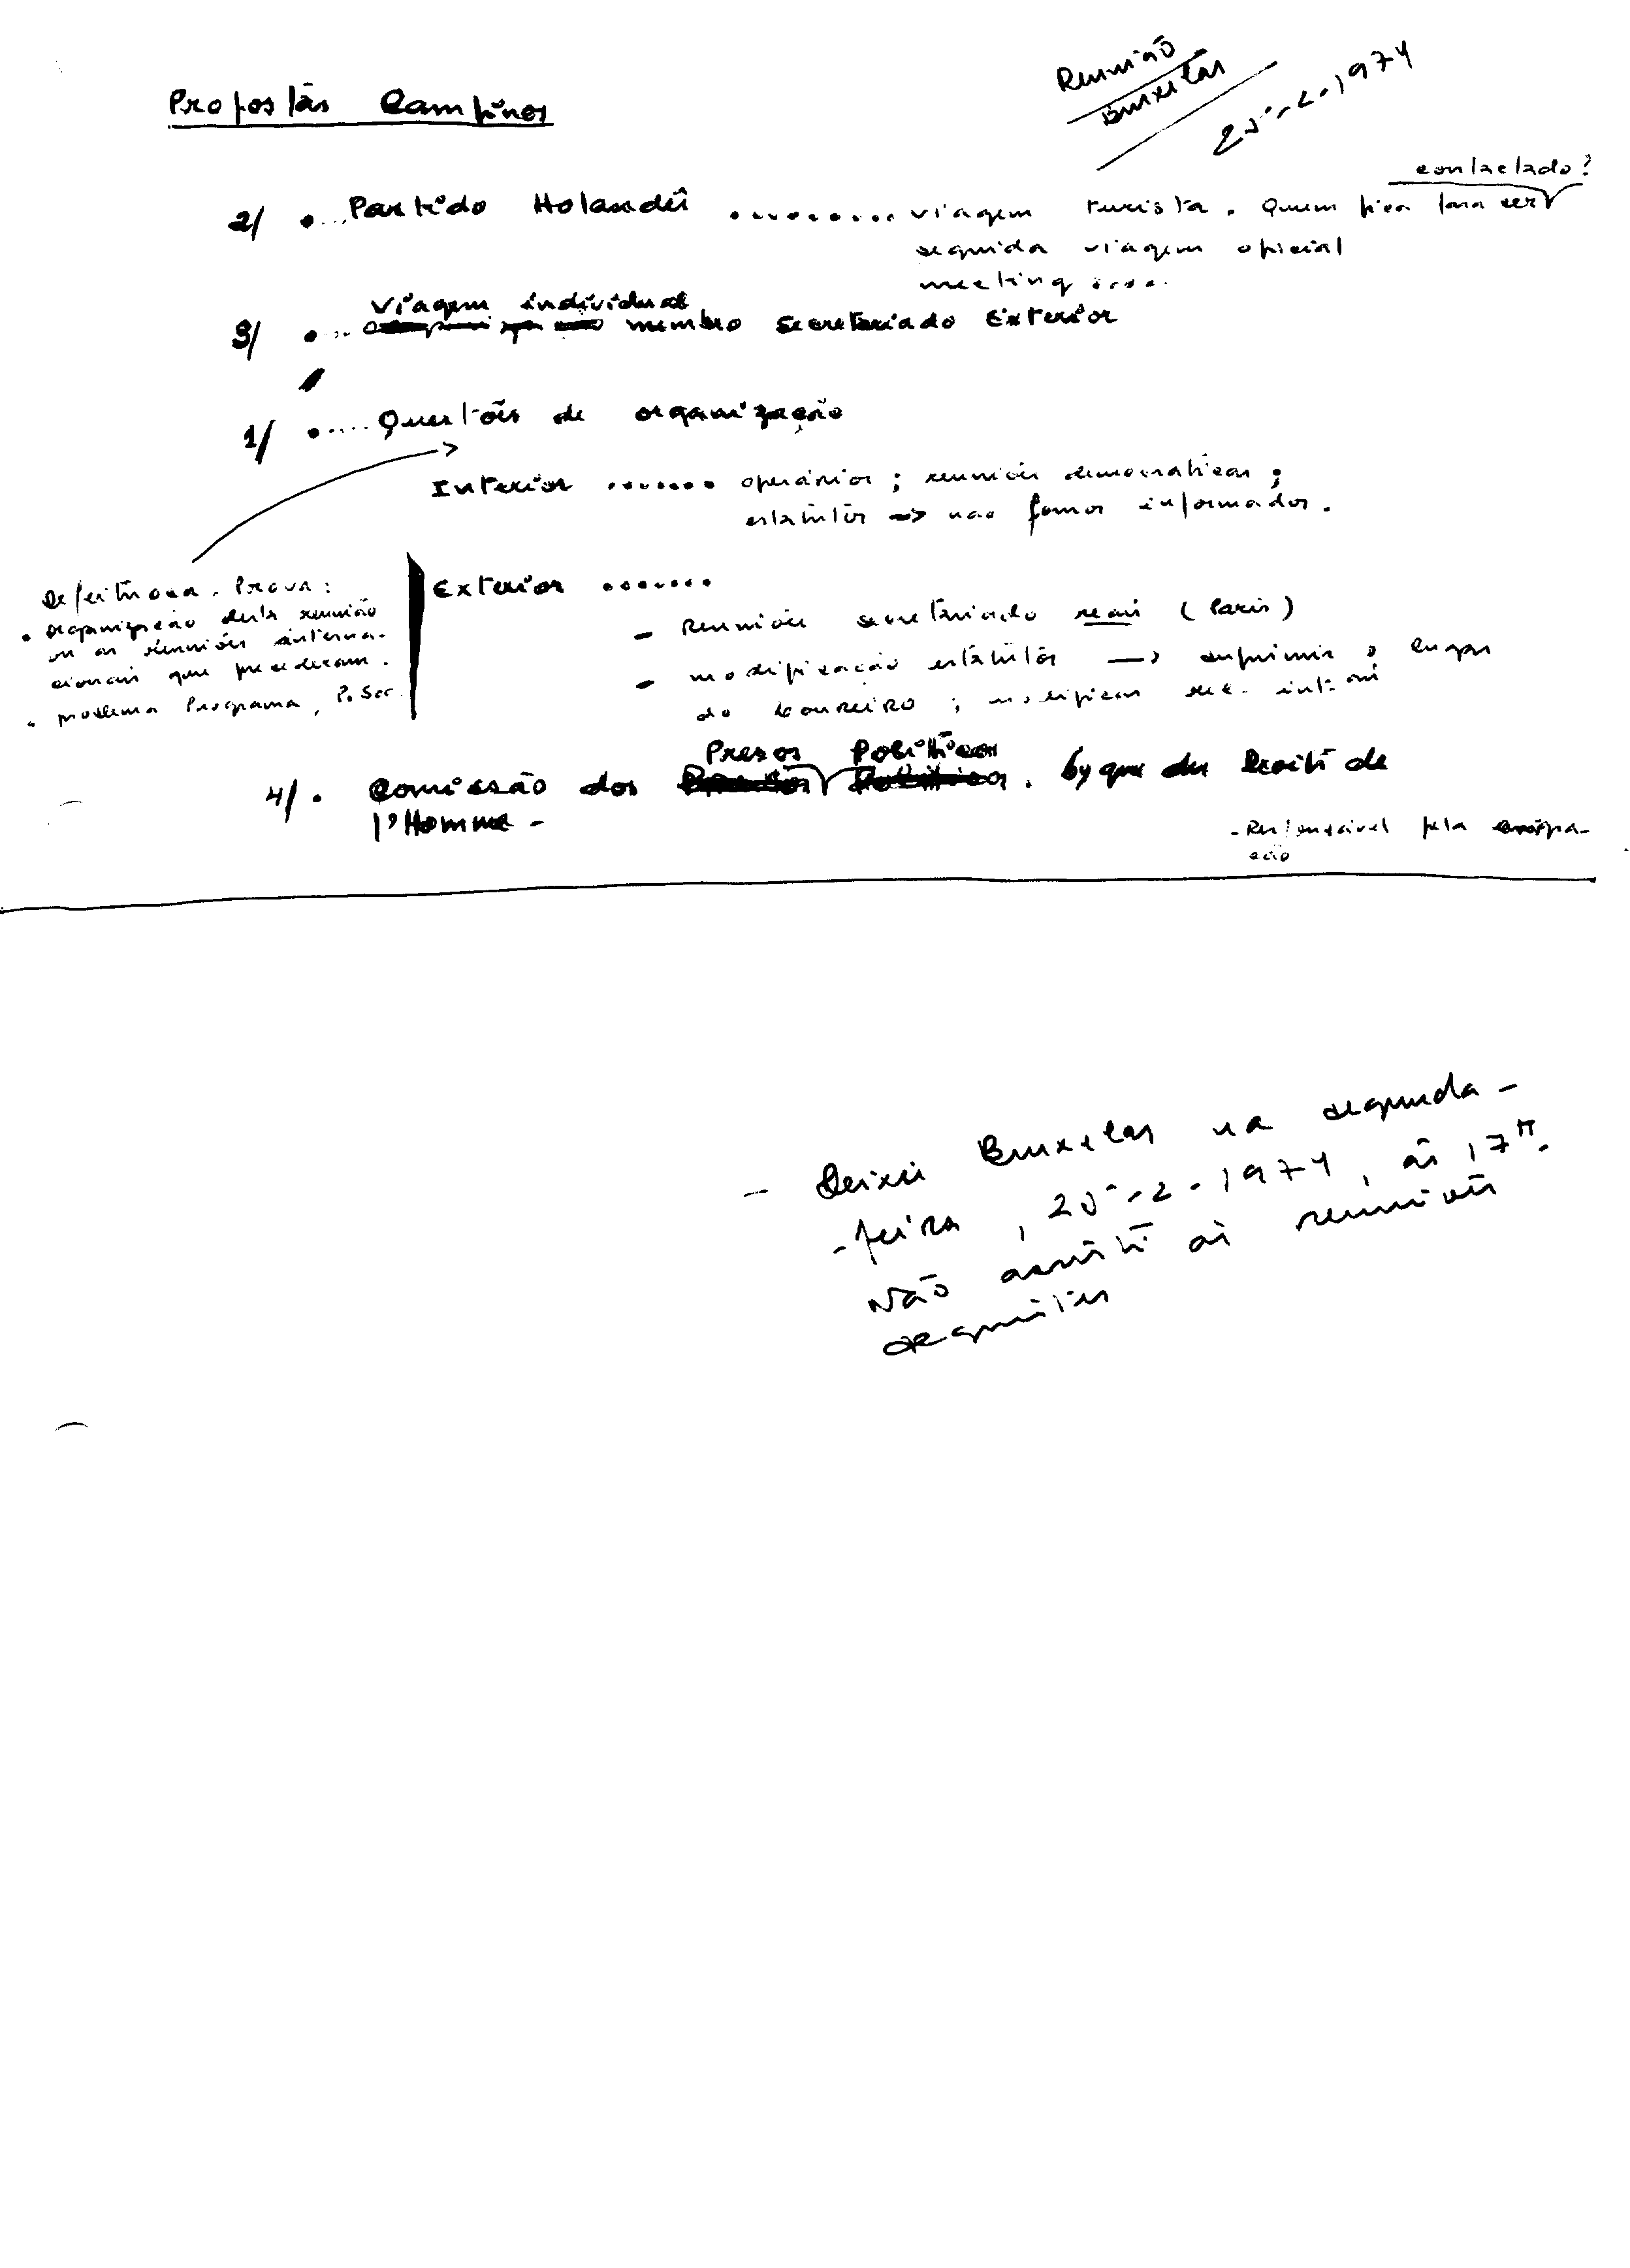 Reunião
Bruxelas
25-2-1974
Propostas Campinos
contactado?
2/ • ... Partido Holandês ......... viagem turista. Quem fica para ser
seguida viagem oficial
meeting ....
viagem individual
3/ • ... membro secretariado Exterior
1/ • .... Questões de organização
Interior ....... operários ; reuniões democraticas ;
estatutos → nao fomos informados.
Defeituosa. Prova:
• organização desta reunião
ou as reuniões interna-
cionais que precederam.
• problema Programa, P. Soc.
Exterior .......
- Reuniões secretariado (Paris)
- modificação estatutos → suprimir o lugar
do Loureiro ; modificar
Presos Politicos
4/. Comissão dos . Ligue des Droits de
l'Homme -
- Responsável pela
- Deixei Bruxelas na segunda-
-feira, 25-2-1974, às 17H.
Não assisti às reuniões
seguintes